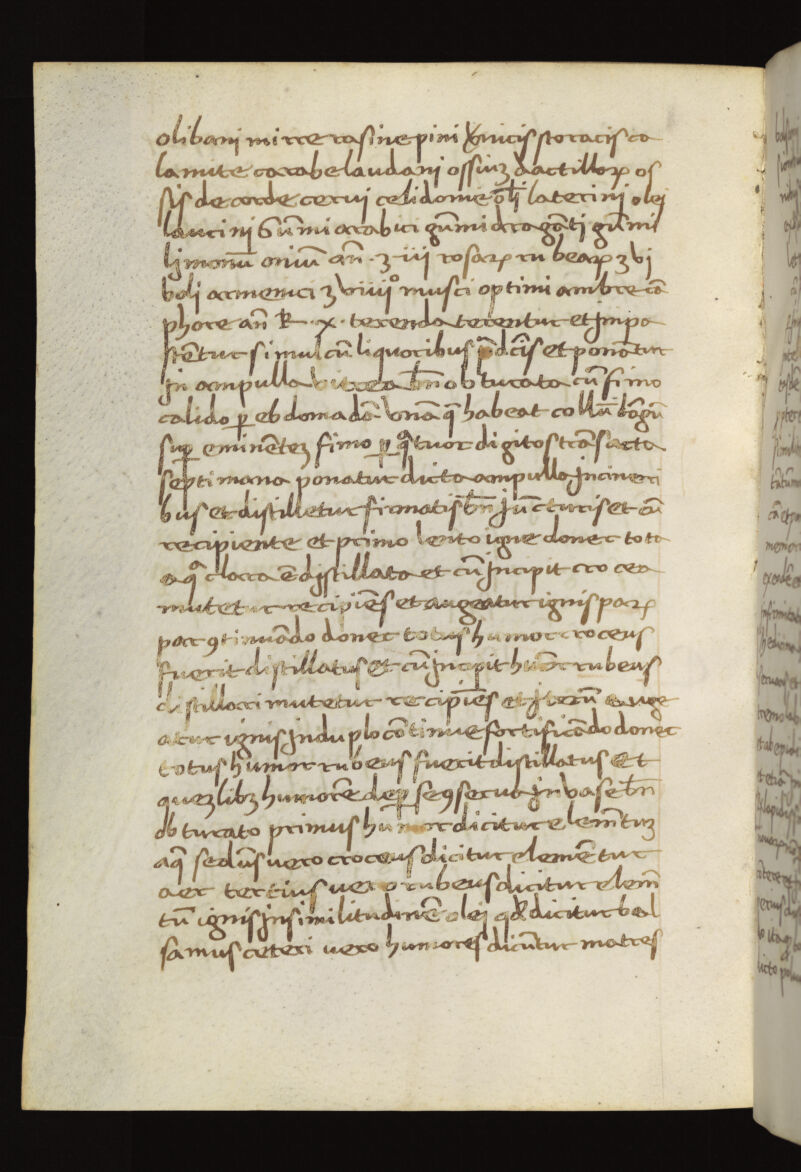 olibani mirre rasine pini vnicis storacis ca
lamite carabe laudani ossiuz dactillorꝝ os
sis de corde cerui celidonie olī laterini olei
laurini Gūmi arabici gūmi dragāti gūmi
limonū oniū an̄ · ʒ iij rosarꝝ rubearꝝ ʒ vj
boli armenici ʒ viiijº musci optimi ambre cā
phore an̄ k · x · terenda terentur et jmpa
stētur simul cū liquoribus p̄dc̄is et ponātur
jn ampulla vitrea bn̄ obturata cū fimo
calido ꝑ ebdomadā vnā q̄ habeat collū lōgū
suꝑ eminētez fimo ꝑ qᵃtuor digitos trāsacta
septimana ponatur dicta ampulla jn cineri
bus et distilletur firmatis bn̄ jūcturis et cū
recipiente et primo lento igne donec tota
aqᵃ clara ē distillata et cū jncipit crocea
mutetur recipiēs et augeatur ignis parꝝ
par 9tinuādo donec totus humor croceus
fuerit distillatus et cū jncipit humōr rubeus
distillari mutetur recipiēs et jterū auge
atur ignis jn duplo cōtinue fortificādo donec
totus humor rubeus fuerit distillatus Et
quezlibz humorē de ꝑ se 9serua jn vase bn̄
obturato primus humor dicitur elemētuz
aq̄ sedūs uero croceus dicitur elemētur
aer tertius uero rubeus dicitur elem̄
tū ignis jn similitudinē olej qd̄ dicitur bal
samus ceteri uero humores dicūtur matres